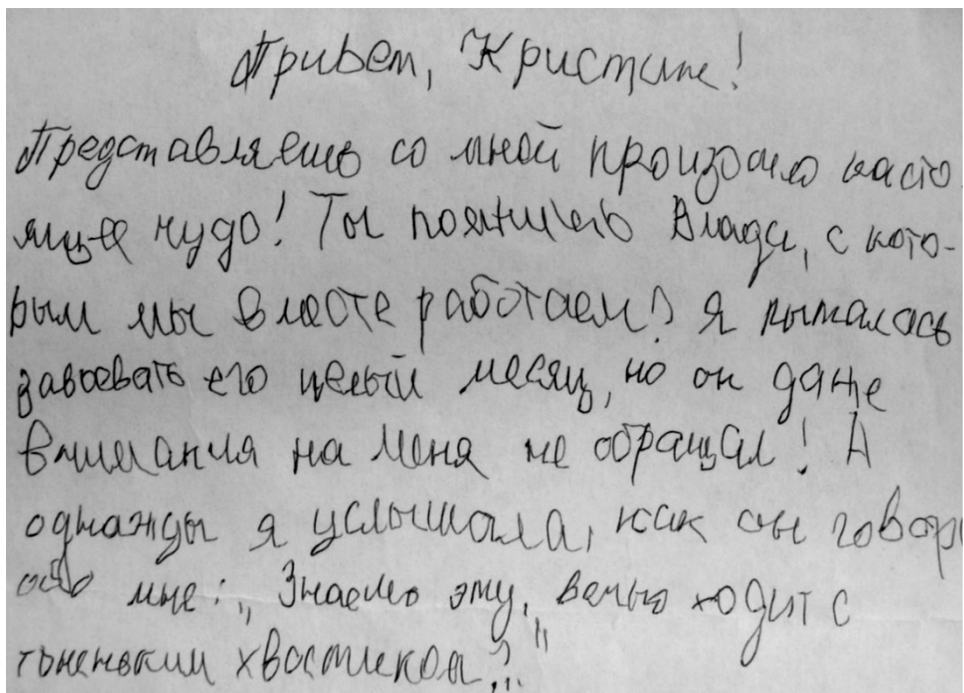 Привет, Кристине!
Представляешь со мной произошло насто
ящее чудо! Ты помнишь Влада, с кото-
рым мы вместе работаем? Я пыталась
завоевать его целый месяц, но он даже
внимания на меня не обращал! А
однажды я услышала, как он говор
обо мне: „Знаешь эту, вечно ходит с
тоненьким хвостиком?"